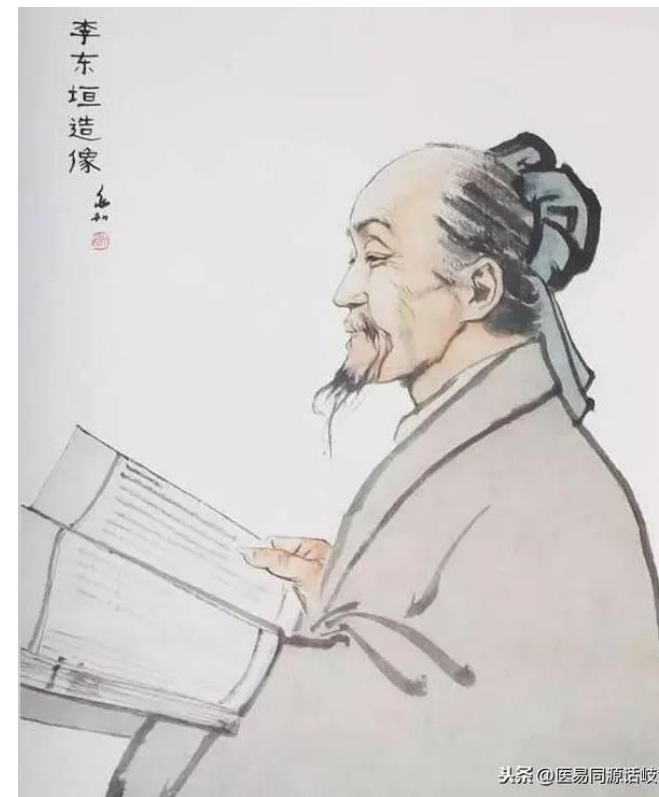 李东垣造像
头条 @医易同源话岐